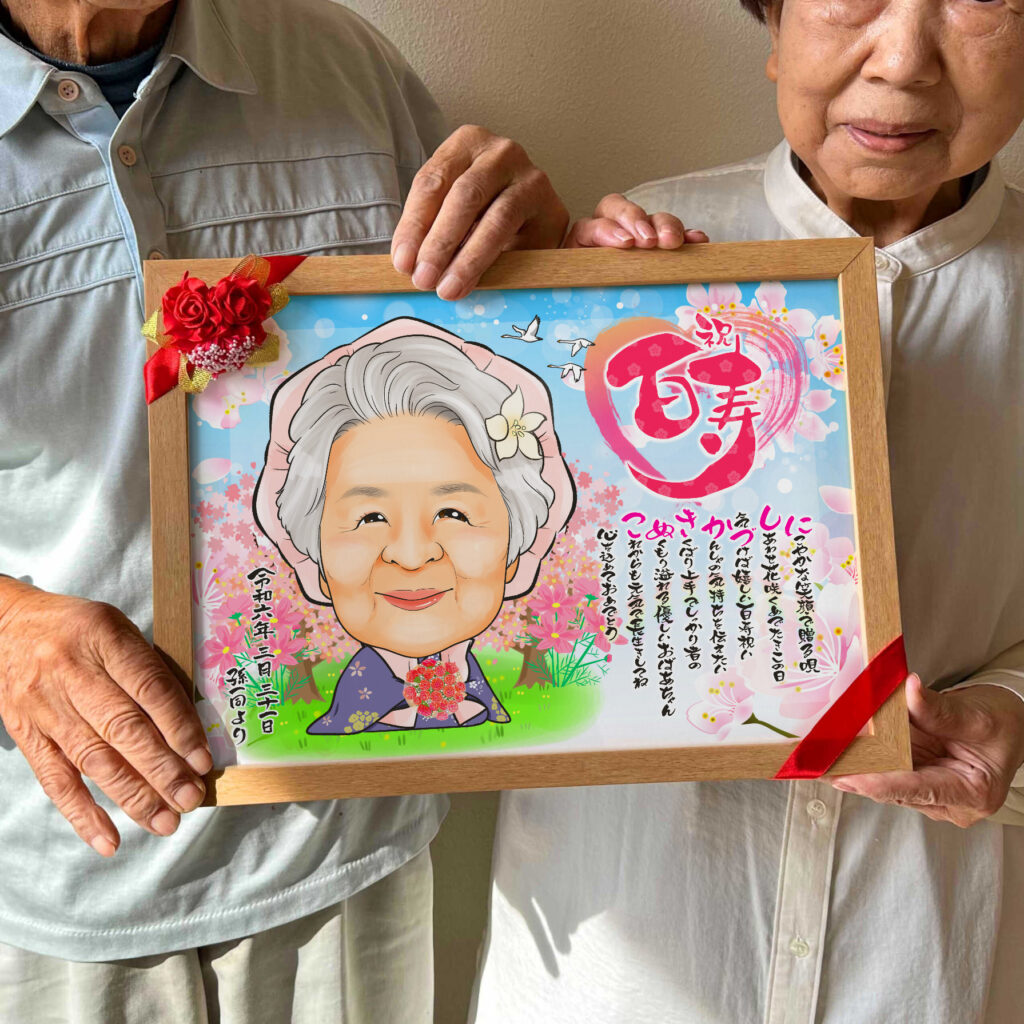 祝
百寿
にこやかな笑顔で贈る唄
しあわせ花咲くめでたきこの日
気づけば嬉しい百寿祝い
かんしゃの気持ちを伝えたい
きくばり上手でしっかり者の
ぬくもり溢れる優しいおばあちゃん
これからも元気で長生きしてね
心を込めておめでとう
令和六年 三月二十一日
孫一同より